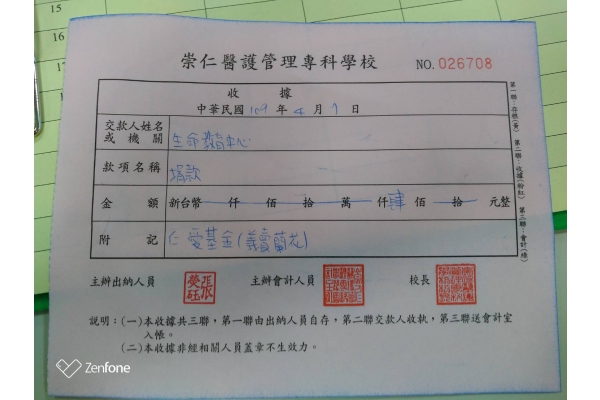 15
16
17
崇仁醫護管理專科學校 NO.026708
收 據
中華民國 109 年 4 月 9 日
交款人姓名
或機關
生命教育中心
款項名稱 捐款
金 額 新台幣 仟 佰 拾 萬 仟 肆 佰 拾 元整
附 記 仁愛基金(義賣蘭花)
第一聯:存根(黃) 第二聯:收據(粉紅) 第三聯:會計(綠)
主辦出納人員 主辦會計人員 校長
說明:(一)本收據共三聯,第一聯由出納人員自存,第二聯交款人收執,第三聯送會計室
入帳。
(二)本收據非經相關人員蓋章不生效力。
Zenfone